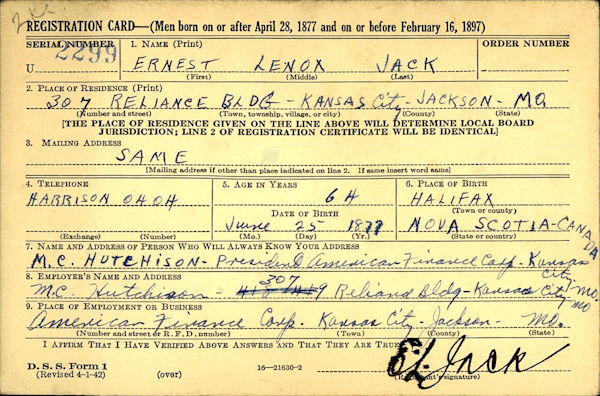 REGISTRATION CARD—(Men born on or after April 28, 1877 and on or before February 16, 1897)
SERIAL NUMBER 1. NAME (Print) ORDER NUMBER
U 2299 ERNEST LENOX JACK
(First) (Middle) (Last)
2. PLACE OF RESIDENCE (Print)
307 RELIANCE BLDG - KANSAS City - JACKSON - MO.
(Number and street) (Town, township, village, or city) (County) (State)
[THE PLACE OF RESIDENCE GIVEN ON THE LINE ABOVE WILL DETERMINE LOCAL BOARD
JURISDICTION; LINE 2 OF REGISTRATION CERTIFICATE WILL BE IDENTICAL]
3. MAILING ADDRESS
SAME
[Mailing address if other than place indicated on line 2. If same insert word same]
4. TELEPHONE 5. AGE IN YEARS 6. PLACE OF BIRTH
HARRISON 0404 64 HALIFAX
DATE OF BIRTH (Town or county)
June 25 1877 NOVA SCOTIA-CANADA
(Exchange) (Number) (Mo.) (Day) (Yr.) (State or country)
7. NAME AND ADDRESS OF PERSON WHO WILL ALWAYS KNOW YOUR ADDRESS
M.C. HUTCHISON - President American Finance Corp. Kansas City, Mo.
8. EMPLOYER'S NAME AND ADDRESS
307
M.C. Hutchison - Reliance Bldg - Kansas City Mo
9. PLACE OF EMPLOYMENT OR BUSINESS
American Finance Corp. Kansas City Jackson Mo.
(Number and street or R. F. D. number) (Town) (County) (State)
I AFFIRM THAT I HAVE VERIFIED ABOVE ANSWERS AND THAT THEY ARE TRUE.
EL Jack
D. S. S. Form 1
(Revised 4-1-42) (over) 16—21630-2 (Registrant's signature)